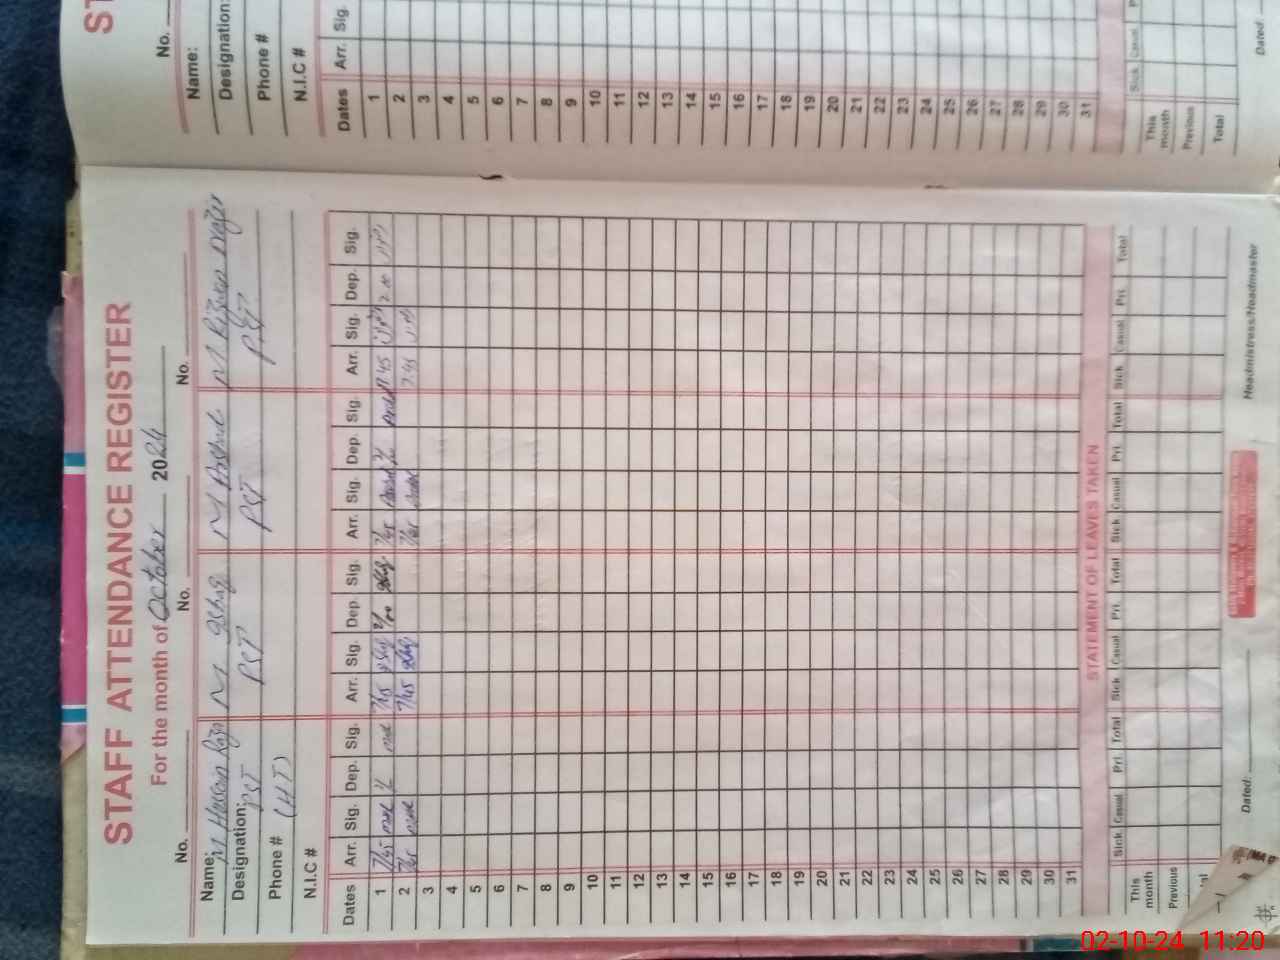 STAFF ATTENDANCE REGISTER
For the month of October 2024
No. No. No.
Name: M Hussain Raza M Ishaq M Arshad M Rizwan Nazir
Designation: PST PST PST PST
Phone # (HT)
N.I.C #
Dates Arr. Sig. Dep. Sig. Arr. Sig. Dep. Sig. Arr. Sig. Dep. Sig. Arr. Sig. Dep. Sig.
1 7/45 7/45 2/00 7/45 7.45 2.00
2 7/45 7/45 7/45 7.45
3
4
5
6
7
8
9
10
11
12
13
14
15
16
17
18
19
20
21
22
23
24
25
26
27
28
29
30
31
STATEMENT OF LEAVES TAKEN
Sick Casual Pri. Total Sick Casual Pri. Total Sick Casual Pri. Total Sick Casual Pri. Total
This month
Previous
Dated: Headmistress/Headmaster
ST
No.
Name:
Designation:
Phone #
N.I.C #
Dates Arr. Sig.
1
2
3
4
5
6
7
8
9
10
11
12
13
14
15
16
17
18
19
20
21
22
23
24
25
26
27
28
29
30
31
Sick Casual
This month
Previous
Total
Dated:
02-10-24 11:20